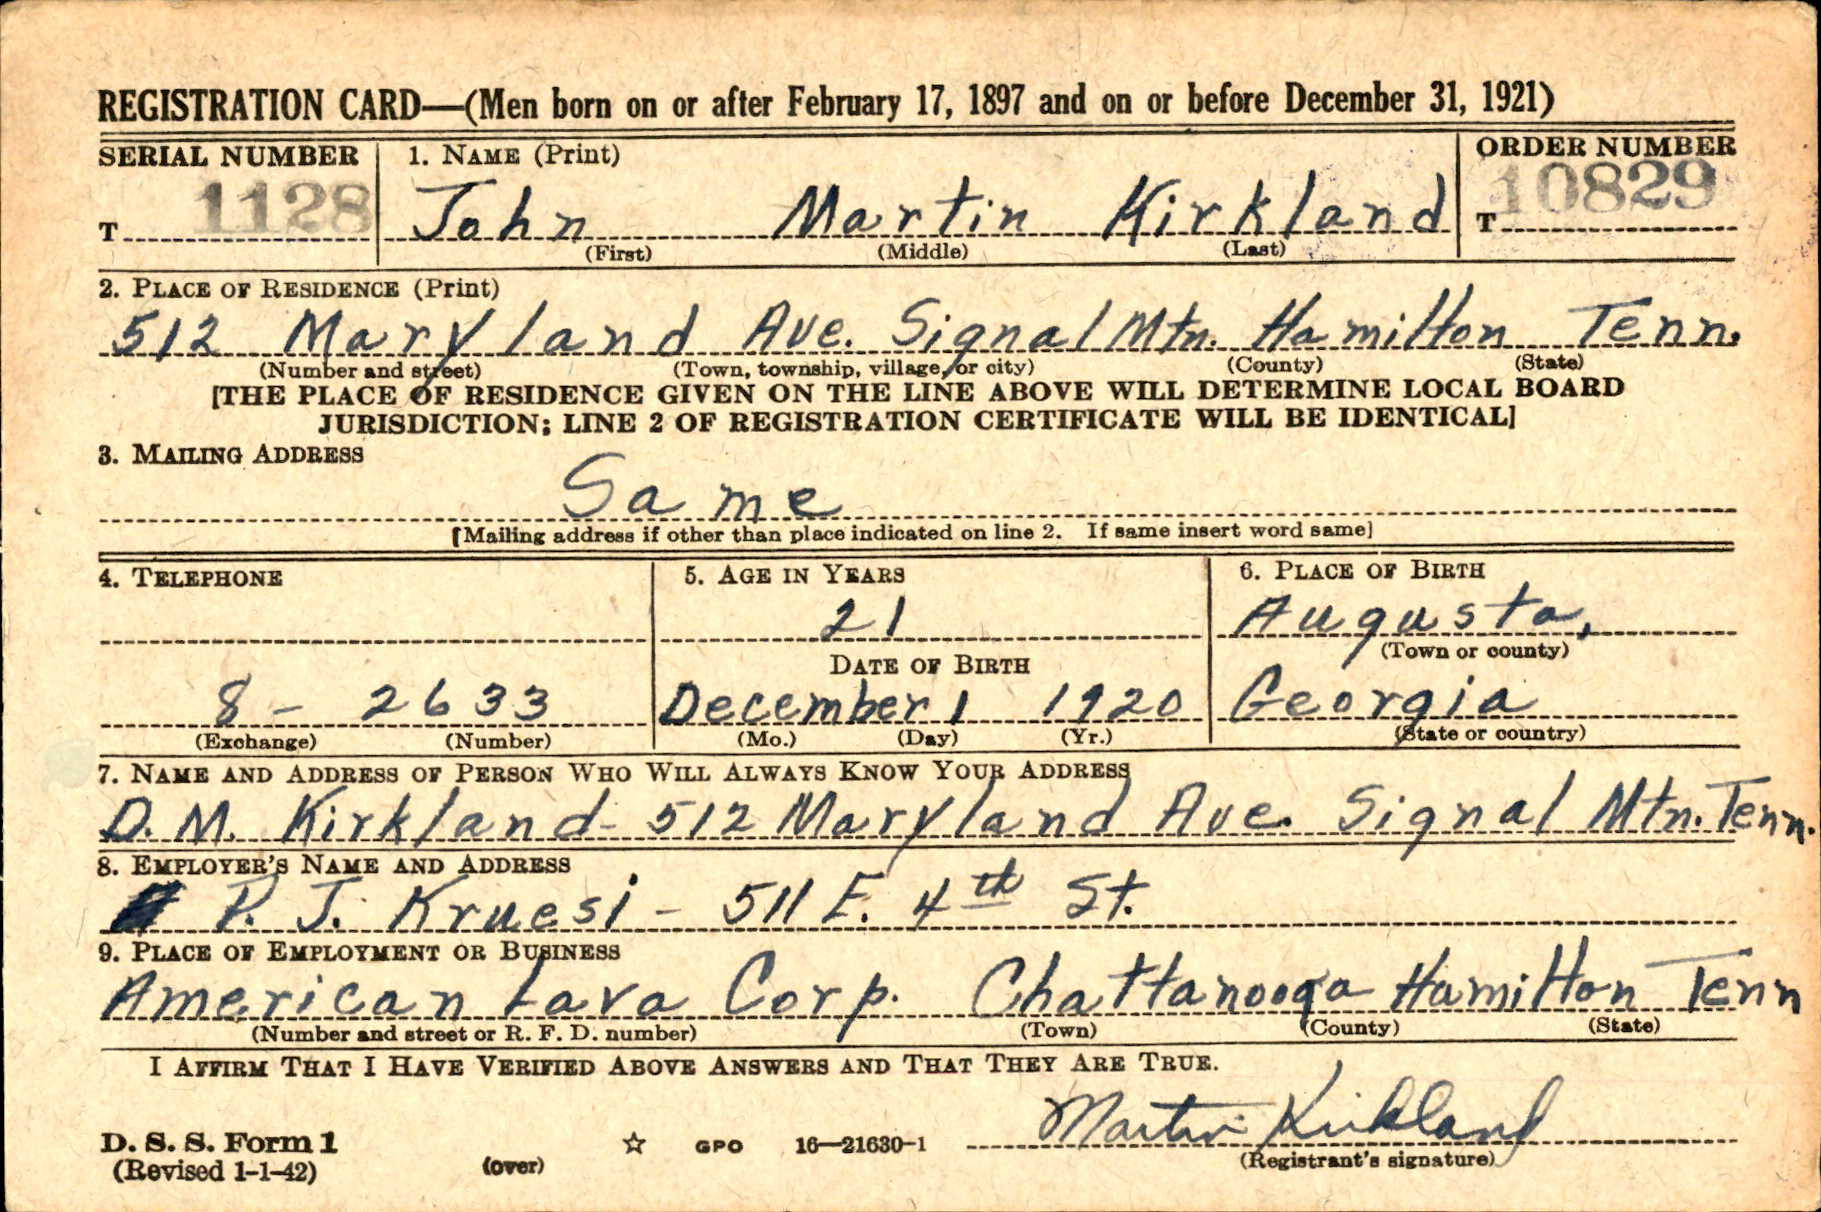 REGISTRATION CARD—(Men born on or after February 17, 1897 and on or before December 31, 1921)
SERIAL NUMBER 1. NAME (Print) ORDER NUMBER
T 1128 John Martin Kirkland T 10829
(First) (Middle) (Last)
2. PLACE OF RESIDENCE (Print)
512 Maryland Ave. Signal Mtn. Hamilton Tenn.
(Number and street) (Town, township, village, or city) (County) (State)
[THE PLACE OF RESIDENCE GIVEN ON THE LINE ABOVE WILL DETERMINE LOCAL BOARD
JURISDICTION; LINE 2 OF REGISTRATION CERTIFICATE WILL BE IDENTICAL]
3. MAILING ADDRESS
Same
[Mailing address if other than place indicated on line 2. If same insert word same]
4. TELEPHONE 5. AGE IN YEARS 6. PLACE OF BIRTH
21 Augusta,
DATE OF BIRTH (Town or county)
8 - 2633 December 1 1920 Georgia
(Exchange) (Number) (Mo.) (Day) (Yr.) (State or country)
7. NAME AND ADDRESS OF PERSON WHO WILL ALWAYS KNOW YOUR ADDRESS
D. M. Kirkland - 512 Maryland Ave. Signal Mtn. Tenn.
8. EMPLOYER'S NAME AND ADDRESS
P. J. Kruesi - 511 E. 4th St.
9. PLACE OF EMPLOYMENT OR BUSINESS
American Lava Corp. Chattanooga Hamilton Tenn
(Number and street or R. F. D. number) (Town) (County) (State)
I AFFIRM THAT I HAVE VERIFIED ABOVE ANSWERS AND THAT THEY ARE TRUE.
Martin Kirkland
D. S. S. Form 1 ☆ GPO 16—21630-1 (Registrant's signature)
(Revised 1-1-42) (over)